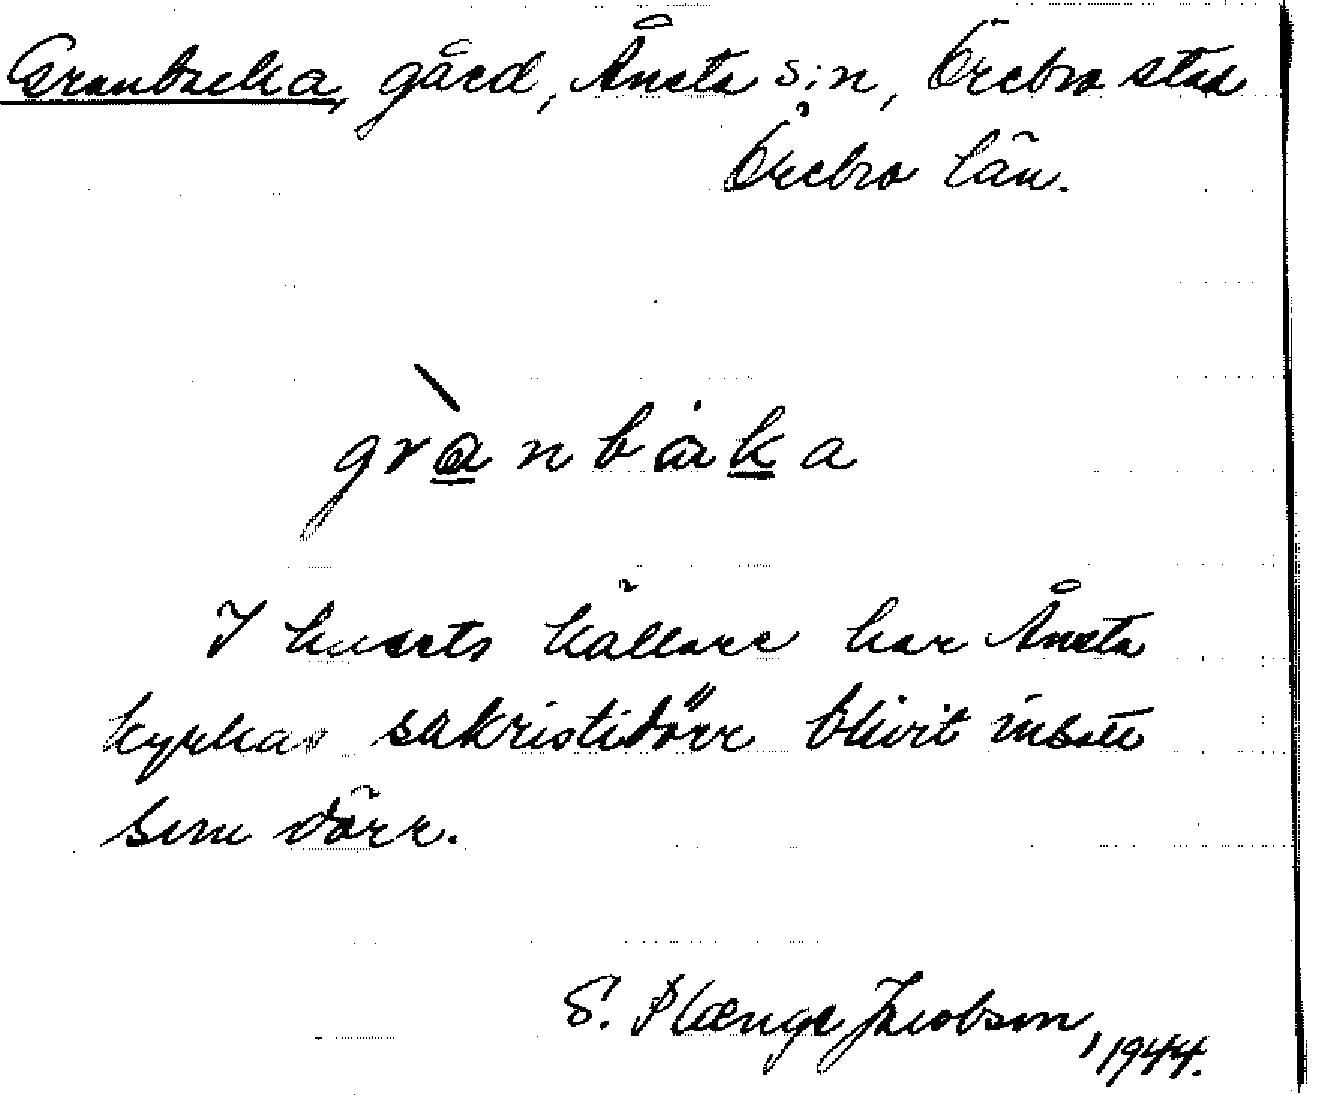 Granbacka, gård, Ånsta s:n, Örebro stad
Örebro län.
grànbȧka
I husets källare har Ånsta
kyrkas sakristidörr blivit insatt
som dörr.
S. Plænge Jacobson, 1944.